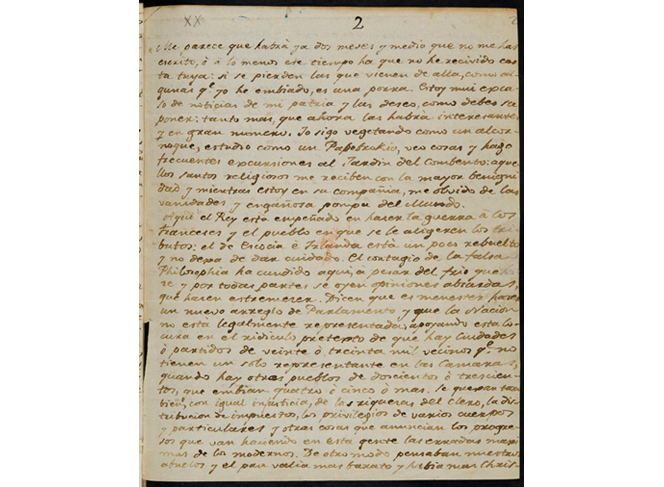 XX 2
Me parece que habrá ya dos meses y medio que no me has
escrito, ó á lo menos ese tiempo ha que no he recivido car
ta tuya: si se pierden las que vienen de allá, como al
gunas q.e yo he embiado, es una porra. Estoy mui esca
so de noticias de mi patria y las deseo, como debes su
poner: tanto mas, que ahora las habra interesantes
y en gran numero. Io sigo vegetando como un alcor
noque, estudio como un Papebrokio, veo cosas y hago
frecuentes excursiones al Jardin del Combento: aque
llos santos religiosos me reciben con la mayor benigni
dad y mientras estoy en su compañia, me olvido de las
vanidades y engañosa pompa del Mundo.
Aqui el Rey está empeñado en hacer la guerra á los
franceses y el pueblo en que se le aligeren los tri
butos: el de Escocia é Irlanda está un poco rebuelto
y no dexa de dar cuidado. El contagio de la falsa
Philosophia ha cundido aqui, a pesar del frio que ha
ce y por todas partes se oyen opiniones absurdas,
que hacen estremecer. Dicen que es menester hacer
un nuevo arreglo de Parlamento y que la Nacion
no está legalmente representada, apoyando esta lo
cura en el ridiculo pretexto de que hay Ciudades
ó partidos de veinte ó treinta mil vecinos q.e no
tienen un solo representante en las Camaras,
quando hay otros pueblos de doscientos ó trescien
tos, que embian quatro ó cinco ó mas. Se quexan tam
bien, con igual injusticia, de las riquezas del clero, la dis
tribucion de impuestos, los privilegios de varios cuerpos
y particulares y otras cosas que anuncian los progre
sos que van haciendo en esta gente las erradas maxi
mas de los modernos. De otro modo pensaban nuestros
abuelos y el pan valia mas barato y habia mas Christ